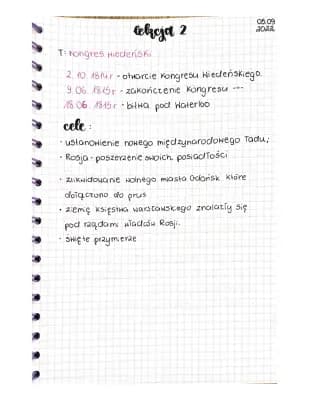 Lekcja 2
05.09
2022
T: Kongres Wiedeński
2.10.1814r - otwarcie Kongresu Wiedeńskiego.
9.06.1815r - zakończenie Kongresu ---
18.06.1815r - bitwa pod Waterloo
cele:
· ustanowienie nowego międzynarodowego ładu;
· Rosja - poszerzenie swoich posiadłości
· zlikwidowanie wolnego miasta Gdańsk które
dołączono do prus
· ziemię księstwa warszawskiego znalazły się
pod rządami władców Rosji.
· święte przymierze